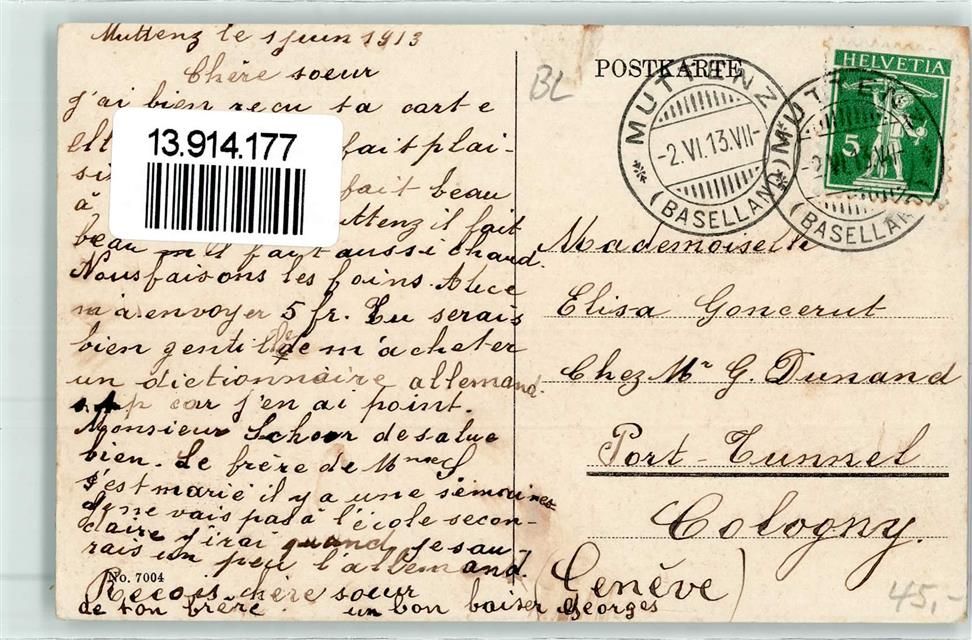 Muttenz le 1 juin 1913
Chère soeur
j'ai bien reçu ta carte
fait plai-
fait beau
à uttenz il fait
beau il fait aussi chaud.
Nous faisons les foins Alice
m'a envoyer 5 fr. Tu serais
bien gentille de m'acheter
un dictionnaire allemand.
car j'en ai point.
Monsieur Schorr de salue
bien. Le frère de Mme S
s'est marié il y a une semaines
je ne vais pas à l'école secon-
daire j'irai quand je sau
rais un peu l'allemand.
No. 7004
Recois chère soeur
de ton frère. un bon baiser Georges
13.914.177
BL
POSTKARTE
HELVETIA
5
* MUTTENZ *
-2.VI.13.VII-
(BASELLAND)
MUTTENZ
(BASELLAND)
Mademoiselle
Elisa Goncerut
Chez Mr G. Dunand
Port-Tunnel
Cologny.
(Genève)
45,-